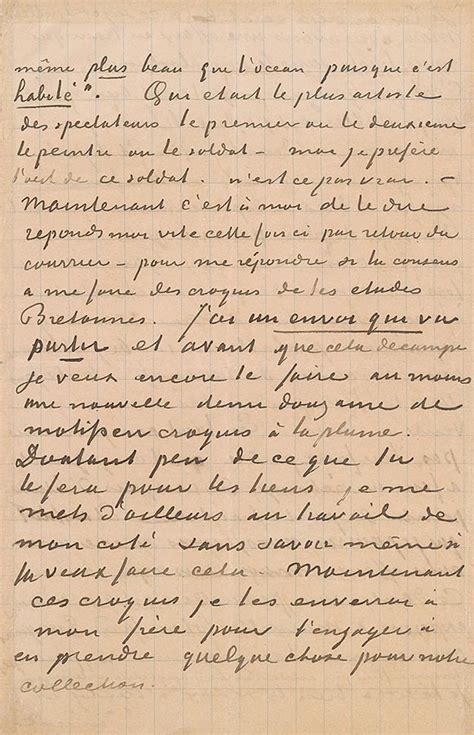 même plus beau que l'ocean puisque c'est
habité".  Qui etait le plus artiste
des spectateurs le premier ou le deuxieme
le peintre ou le soldat – moi je prefère
l'oeil de ce soldat. n'est ce pas vrai. –
Maintenant c'est à moi de te dire
reponds moi vite cette fois ci par retour du
courrier – pour me répondre si tu consens
a me faire des croquis de tes etudes
Bretonnes. J'ai un envoi qui va
partir et avant que cela decampe
je veux encore te faire au moins
une nouvelle demi douzaine de
motifs en croquis à la plume.
Doutant peu de ce que tu
le fera pour les tiens je me
mets d'ailleurs au travail de
mon coté sans savoir même si
tu veux faire cela. Maintenant
ces croquis je les enverrai à
mon frère pour l'engager à
en prendre quelque chose pour notre
collection.